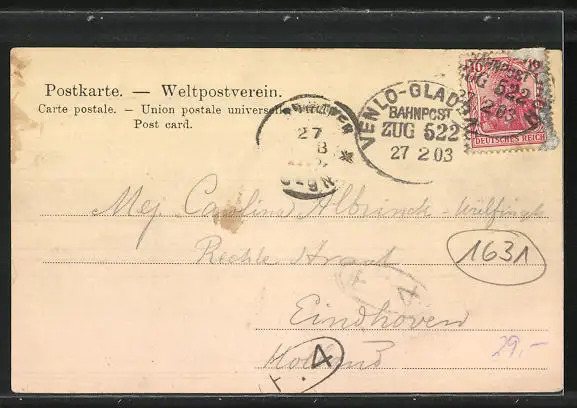 Postkarte. — Weltpostverein.
Carte postale. — Union postale universelle
Post card.
27
VENLO-GLADB
BAHNPOST
ZUG 522
27 2 03
10
BAHNPOST
ZUG 522
2 03
DEUTSCHES REICH
Mej. Carolina Albrinck-Wülfingh
Rechte Straat
1631
4
Eindhoven
Holland
29,-
4